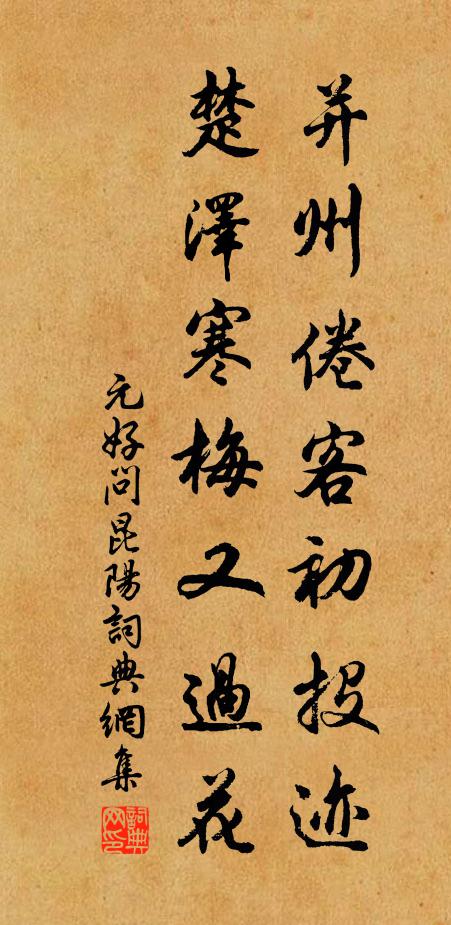 并州倦客初投迹
楚澤寒梅又過花
元好问昆陽詞典網集
詞典网印